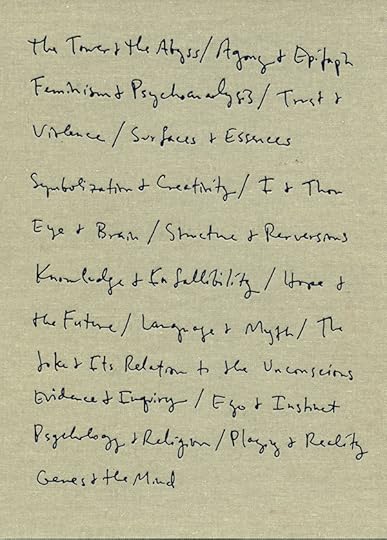 The Tower & the Abyss / Agony & Epitaph
Feminism & Psychoanalysis / Trust &
Violence / Surfaces & Essences
Symbolization & Creativity / I & Thou
Eye & Brain / Structure & Perversions
Knowledge & Infallibility / Hope &
the Future / Language & Myth / The
Joke & Its Relation to the Unconscious
Evidence & Inquiry / Ego & Instinct
Psychology & Religion / Playing & Reality
Genes & the Mind